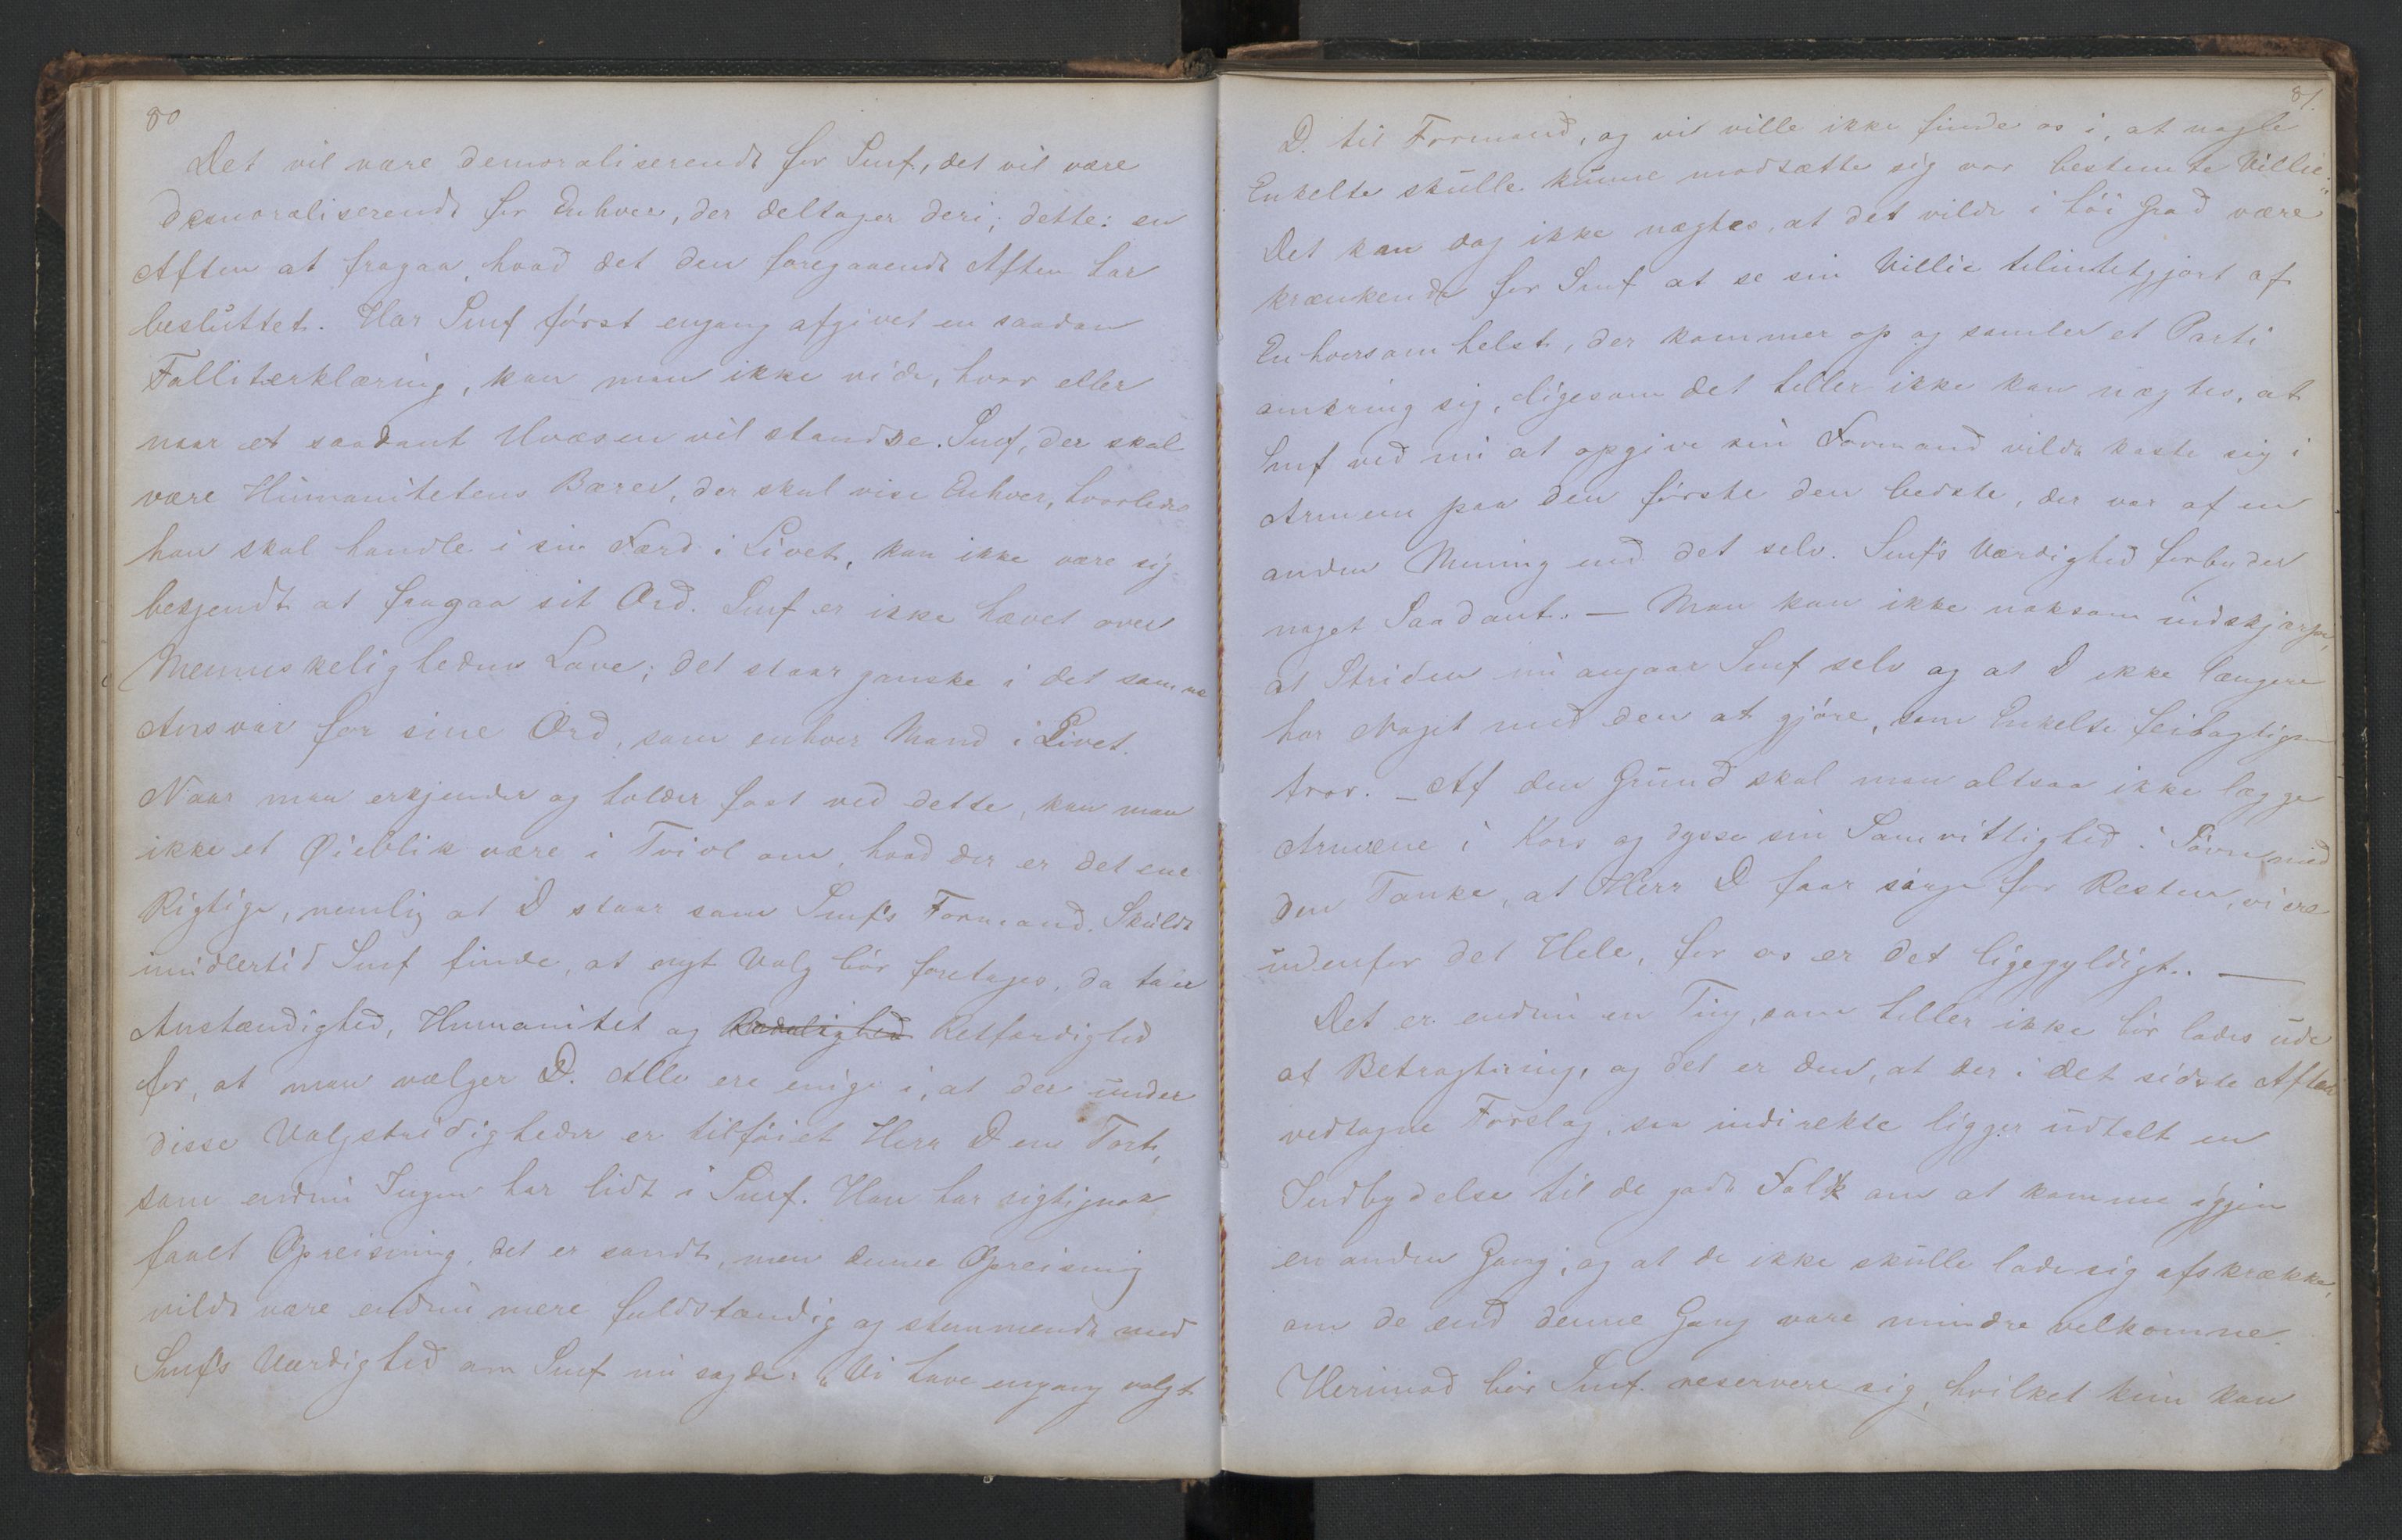 80
Det vil være demoraliserende for Smf, det vil være
demoraliserende for Enhver, der deltager deri; dette: en
Aften at fragaa, hvad det den foregaaende Aften har
besluttet. Har Smf først engang afgivet en saadan
Falliterklæring, kan man ikke vide, hvor eller
naar et saadant Uvæsen vil standse. Smf, der skal
være Humanitetens Bærer, der skal vise Enhver, hvorledes
han skal handle i sin Færd i Livet, kan ikke være sig
bekjendt at fragaa sit Ord. Smf er ikke hævet over
Menneskelighedens Love; det staar ganske i det samme
Ansvar for sine Ord, som enhver Mand i Livet.
Naar man erkjender og holder fast ved dette, kan man
ikke et Øieblik være i Tvivl om, hvad der er det ene
Rigtige, nemlig at D staar som Smf's Formand. Skulde
imidlertid Smf finde, at nyt Valg bør foretages, da taler
Anstændighed, Humanitet og Retfærdighed
for, at man vælger D. Alle ere enige i, at der under
disse Valgstridigheder er tilføiet Herr D en Tort,
som endnu Ingen har lidt i Smf. Han har rigtignok
faaet Opreisning, det er sandt, men denne Opreisning
vilde være endnu mere fuldstændig og stemmende med
Smf's Værdighed om Smf nu sagde: "Vi have engang valgt
81.
D. til Formand, og vi ville ikke finde os i, at nogle
Enkelte skulle kunne modsætte sig vor bestemte Villie."
Det kan dog ikke nægtes, at det vilde i høi Grad være
krænkende for Smf at se sin Villie tilintetgjort af
Enhversomhelst, der kommer op og samler et Parti
omkring sig, ligesom det heller ikke kan nægtes, at
Smf ved nu at opgive sin Formand vilde kaste sig i
Armene paa den første den bedste, der var af en
anden Mening end det selv. Smf's Værdighed forbyder
noget Saadant. — Man kan ikke noksom indskjærpe,
at Striden nu angaar Smf selv og at D ikke længere
har Noget med den at gjøre, som Enkelte feilagtigen
tror. – Af den Grund skal man altsaa ikke lægge
Armene i Kors og dysse sin Samvittighed i Søvn med
den Tanke, at Herr D faar sørge for Resten, vi ere
udenfor det Hele, for os er det ligegyldigt. —
Det er endnu en Ting, som heller ikke bør lades ude
af Betragtning, og det er den, at der i det sidste Aften
vedtagne Forslag, saa indirekte ligger udtalt en
Indbydelse til de gode Folk om at komme igjen
en anden Gang, og at de ikke skulle lade sig afskrække,
om de end denne Gang vare mindre velkomne.
Herimod bør Smf. reservere sig, hvilket kun kan